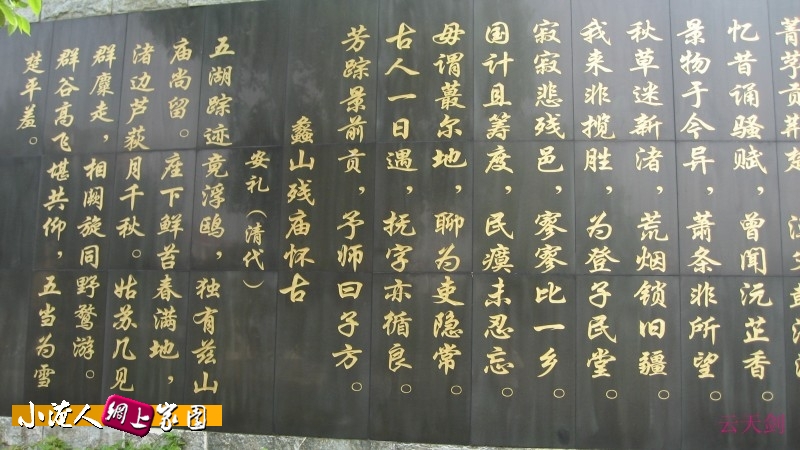 菁茅贡荆楚，
忆昔诵骚赋，曾闻沅芷香。
景物于今异，萧条非所望。
秋草迷新渚，荒烟锁旧疆。
我来非揽胜，为登子民堂。
寂寂悲残邑，寥寥比一乡。
国计且筹度，民瘼未忍忘。
毋谓蕞尔地，聊为吏隐常。
古人一日遇，抚字亦循良。
芳踪景前贡，予师曰子方。
蠡山残庙怀古
安礼（清代）
五湖踪迹竟浮鸥，独有兹山
庙尚留。座下鲜苔春满地，
渚边芦荻月千秋。姑苏几见
群麋走，相阙旋同野鹜游。
群谷高飞堪共仰，五当为雪
楚平羞。
小淹人网上家园
云天剑